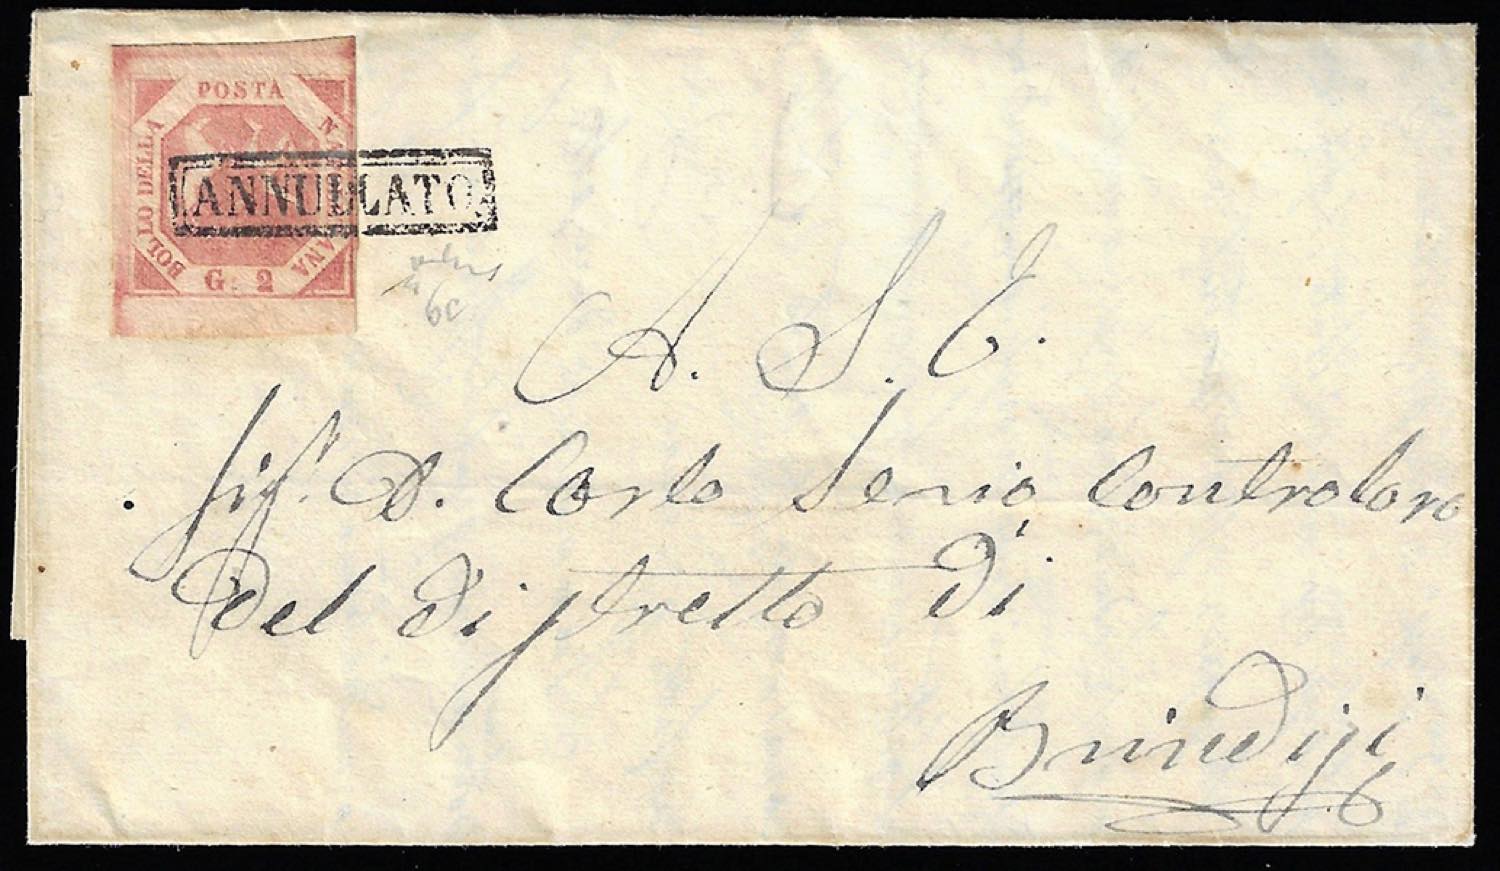 POSTA
BOLLO DELLA
NA
ANA
G. 2
ANNULLATO
6c
A. S. E.
Sig.r D. Carlo Senio Controloro
Del Distretto Di
Brindisi